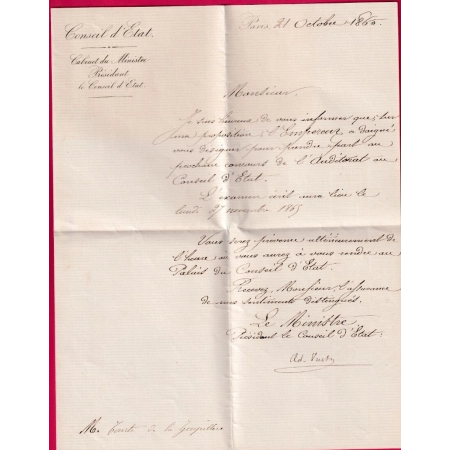 Conseil d'Etat.
Paris, 21 Octobre 1865
Cabinet du Ministre
Président
le Conseil d'Etat
Monsieur,
Je suis heureux de vous informer que, sur
ma proposition, l'Empereur, a daigné
vous désigner pour prendre part au
prochain concours de l'Auditorat au
Conseil d'Etat.
L'examen écrit aura lieu le
lundi 27 novembre 1865
Vous serez prévenu ultérieurement de
l'heure où vous aurez à vous rendre au
Palais du Conseil d'Etat.
Recevez, Monsieur, l'assurance
de mes sentiments distingués.
Le Ministre
Président le Conseil d'Etat
M. de la